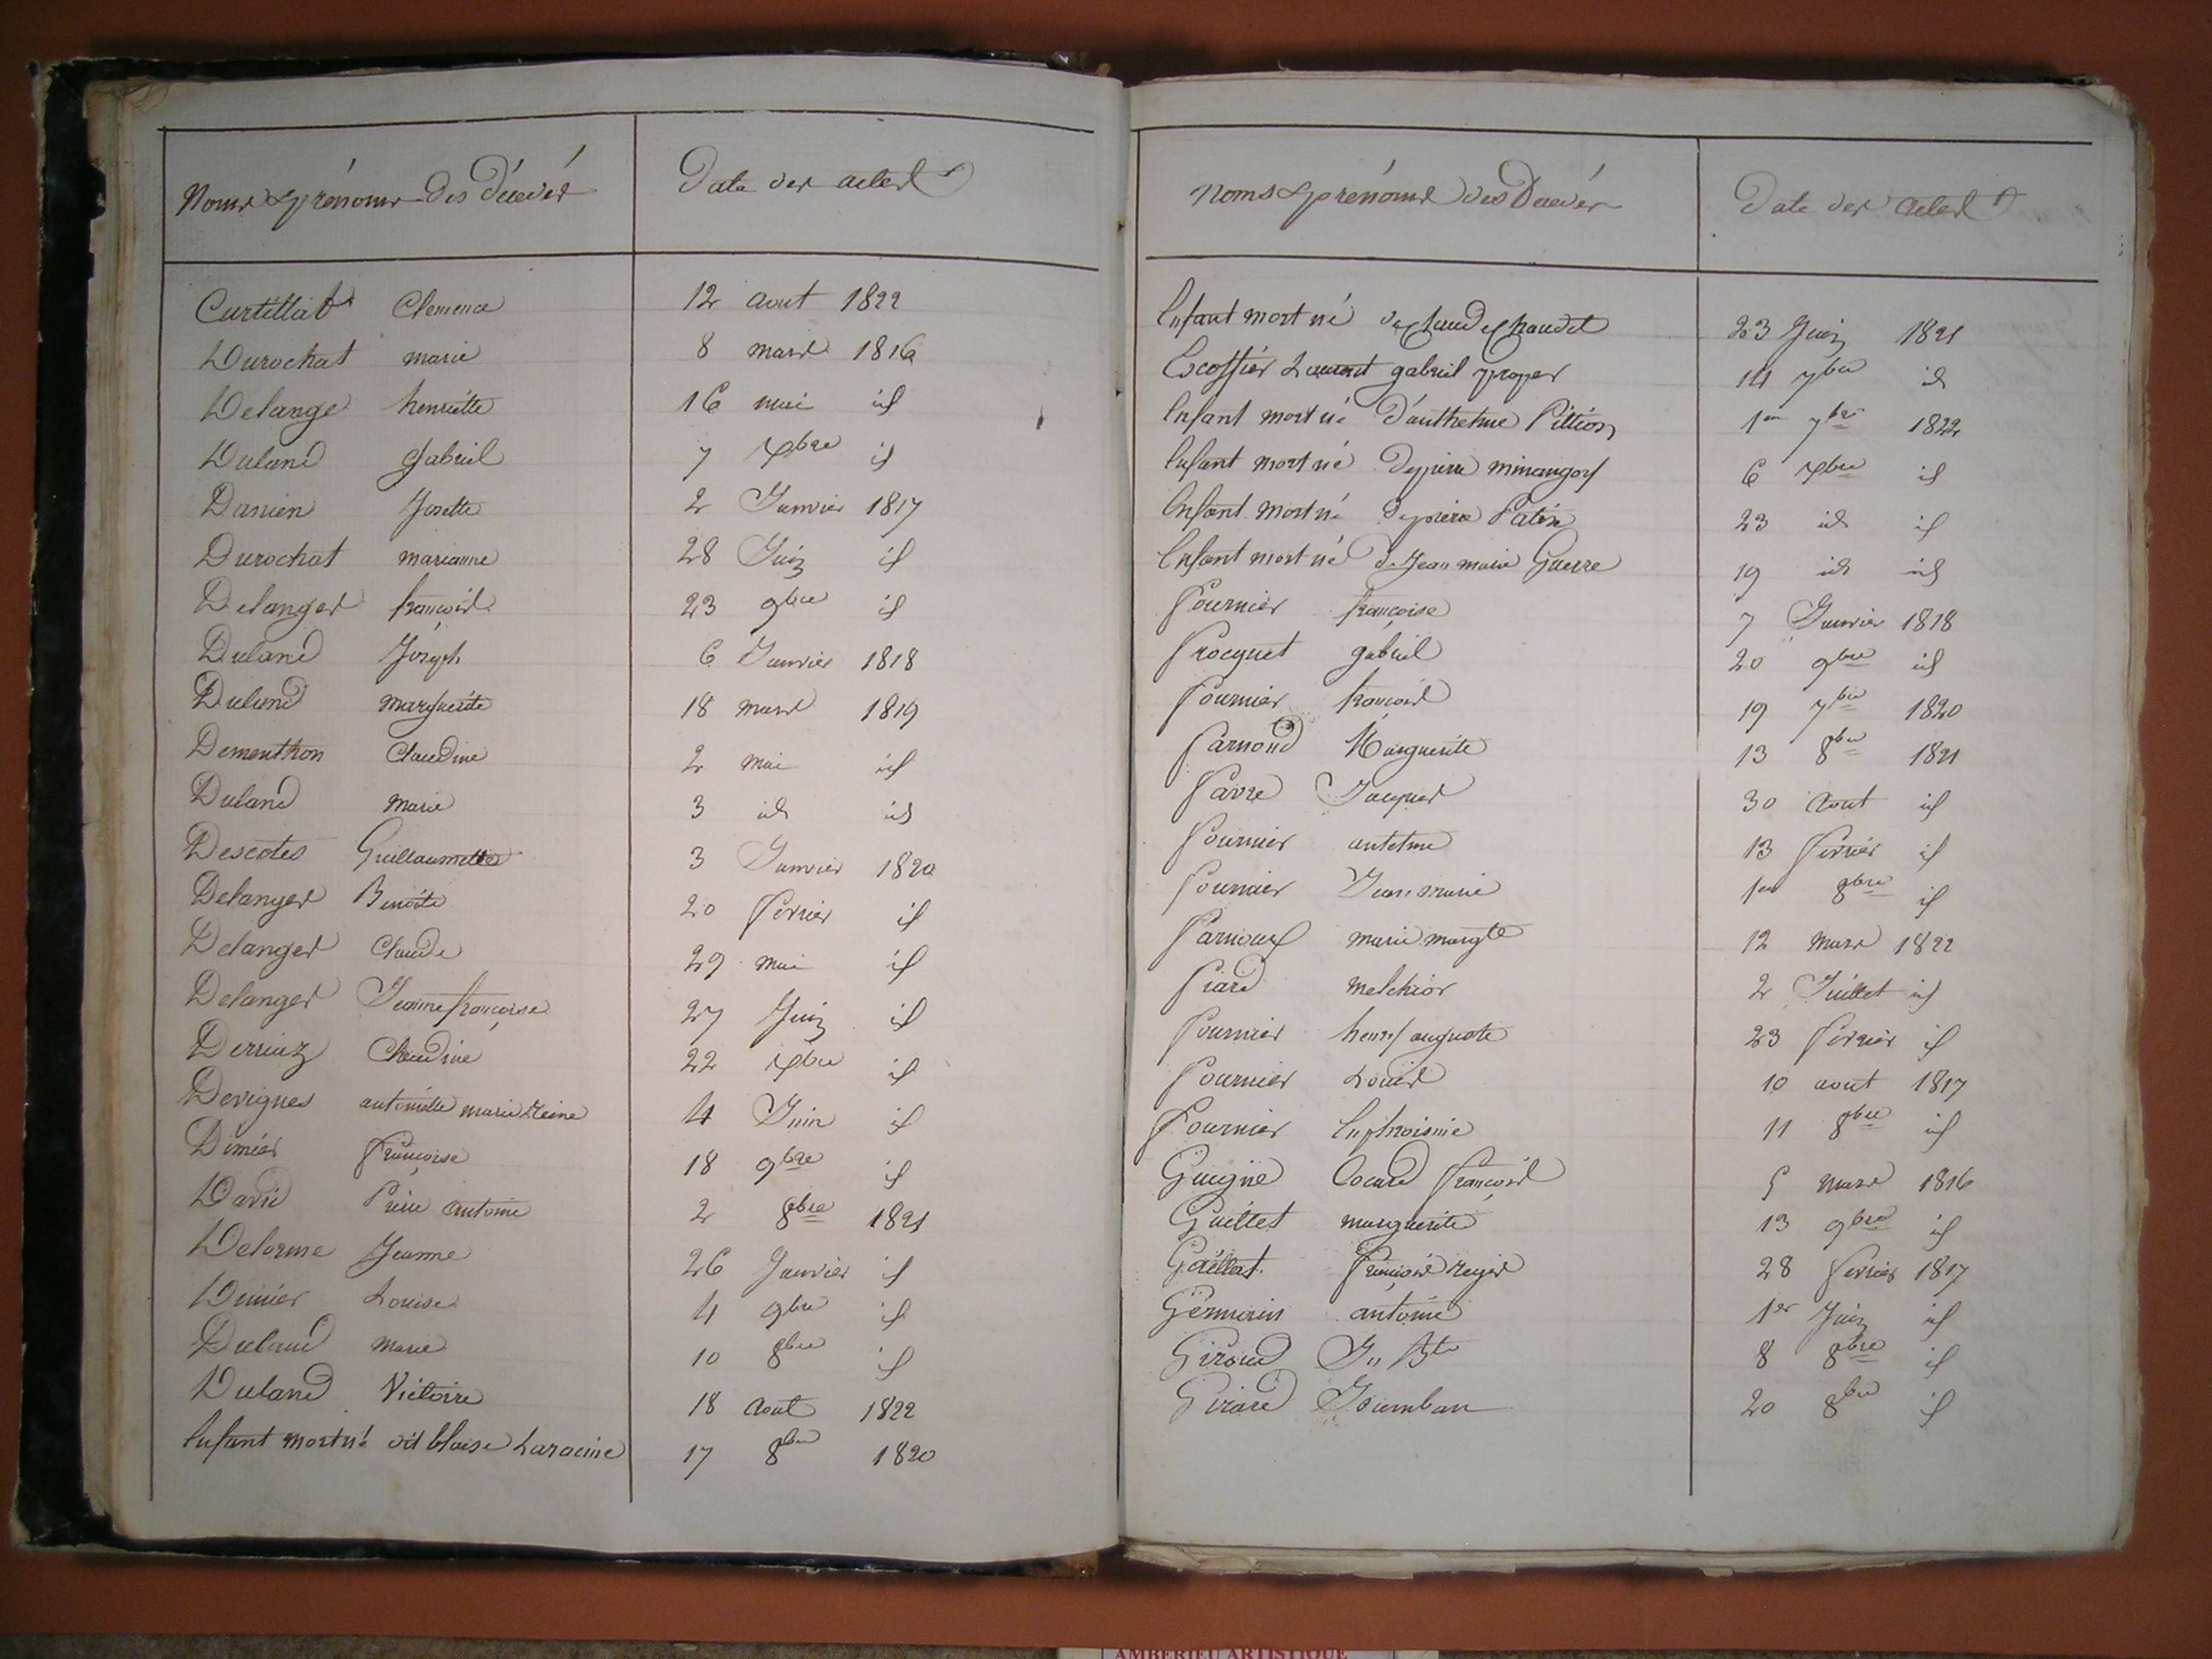 Noms & prénoms des Décédés Date des actes
Curtillat Clemence 12 aout 1822
Durochat marie 8 mars 1816
Delange henriette 16 mai id
Duland gabriel 7 xbre id
Danien Josette 2 Janvier 1817
Durochat marianne 28 Juin id
Delanges françois 23 9bre id
Duland Joseph 6 Janvier 1818
Duland marguerite 18 mars 1819
Dementhon Claudine 2 mai id
Duland marie 3 id id
Descotes Guillaumette 3 Janvier 1820
Delanges Benoite 20 fevrier id
Delanges Claude 29 mai id
Delanges Jeanne françoise 27 Juin id
Derriaz Claudine 22 xbre id
Devignes antoinette marie Reine 4 Juin id
Dimier françoise 18 9bre id
David Pierre antoine 2 8bre 1821
Delorme Jeanne 26 Janvier id
Dimier Louise 4 9bre id
Duland marie 10 8bre id
Duland Victoire 18 aout 1822
Enfant mort né dit blaise Laracine 17 8bre 1820
Noms & prénoms des Décédés Date des actes
Enfant mort né de Claude Chaudet 23 Juin 1821
Escoffier Laurent gabriel prosper 14 7bre id
Enfant mort né d'anthelme Pittion 1er 7bre 1822
Enfant mort né de pierre minangoy 6 xbre id
Enfant mort né de pierre Patin 23 id id
Enfant mort né de Jean marie Guerre 19 id id
Fournier françoise 7 Janvier 1818
Frocquet gabriel 20 9bre id
Fournier françois 19 7bre 1820
Farnoud Marguerite 13 8bre 1821
Favre Jacques 30 aout id
Fournier antelme 13 fevrier id
Fournier Jean marie 1er 8bre id
Farnoux marie margte 12 mars 1822
Fiard melchior 2 Juillet id
Fournier henry auguste 23 fevrier id
Fournier Louis 10 aout 1817
Fournier Euphroisine 11 8bre id
Guigue françois 5 mars 1816
Guillet marguerite 13 9bre id
Gaillat 28 fevrier 1817
Germain antoine 1er Juin id
Giroud Jn Bte 8 8bre id
Girard 20 8bre id
AMBERIEU ARTISTIQUE